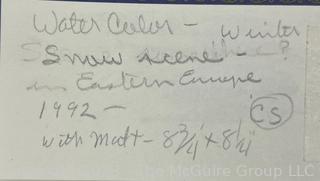 Water Color - Winter
Snow scene - ?
in Eastern Europe
1992 -
CS
with Matt - 8 3/4 x 8 1/4
The McGuire Group LLC